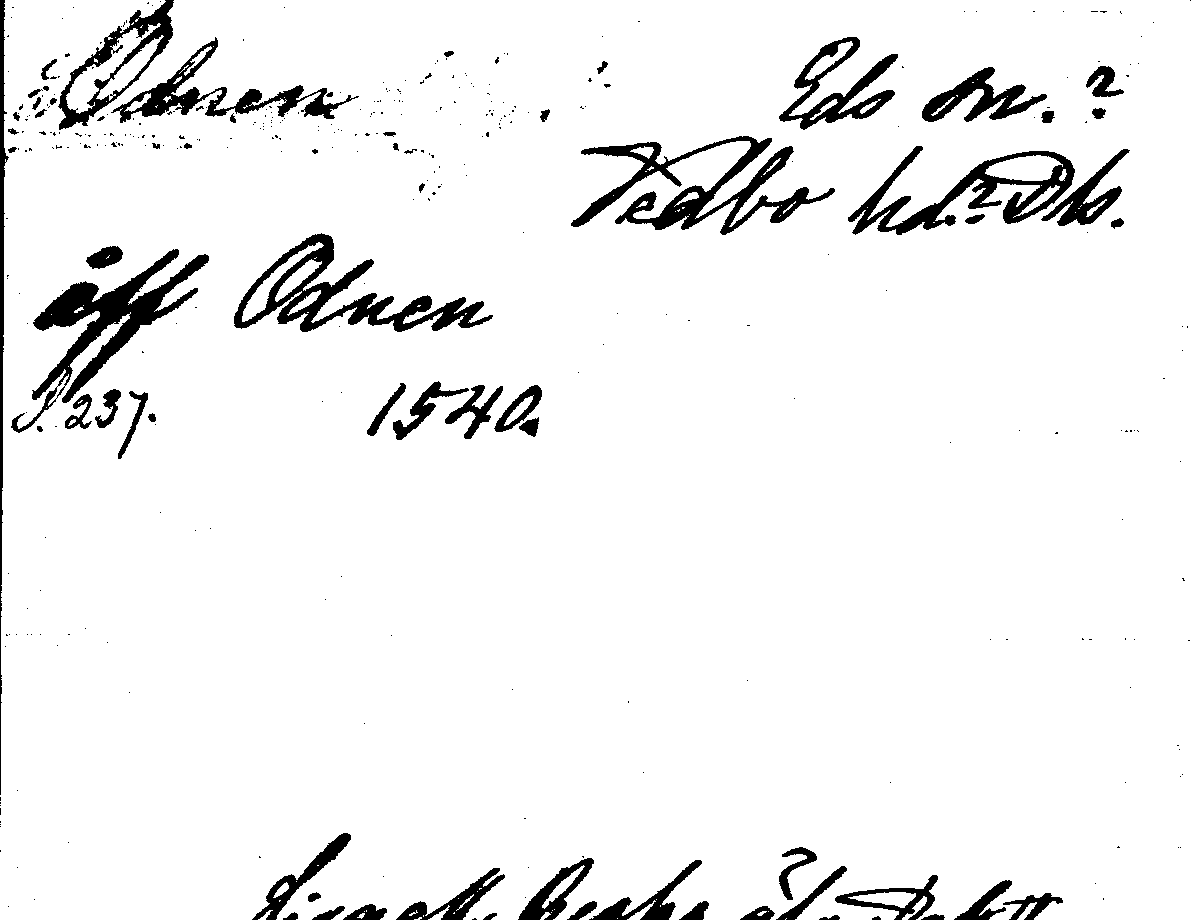 å Ödnen Eds sn.?
Vedbo hd.? Dls.
åff Odnen
S. 237. 1540.